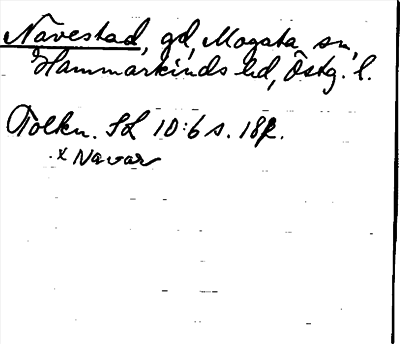 Navestad, gd, Mogata sn,
Hammarkinds hd, Östg. l.
Tolkn. SL 10:6 s. 18f.
x Navar